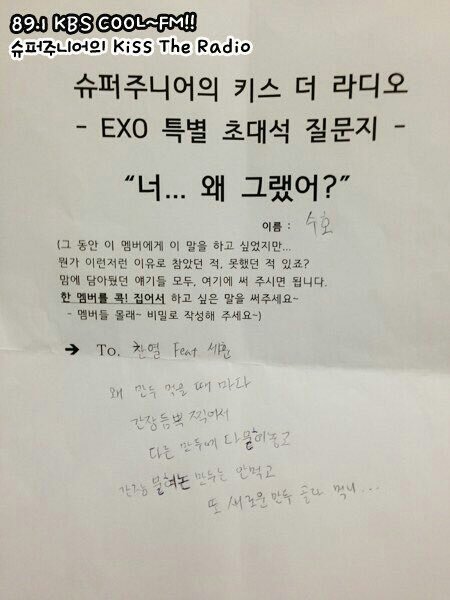 89.1 KBS COOL~FM!!
슈퍼주니어의 Kiss The Radio
슈퍼주니어의 키스 더 라디오
- EXO 특별 초대석 질문지 -
“너... 왜 그랬어?”
이름 : 수호
(그 동안 이 멤버에게 이 말을 하고 싶었지만...
뭔가 이런저런 이유로 참았던 적, 못했던 적 있죠?
맘에 담아뒀던 얘기들 모두, 여기에 써 주시면 됩니다.
한 멤버를 콕! 집어서 하고 싶은 말을 써주세요~
- 멤버들 몰래~ 비밀로 작성해 주세요~)
➔ To. 찬열 Feat 세훈
왜 만두 먹을 때 마다
간장 듬뿍 찍어서
다른 만두에 다 묻혀놓고
간장 묻혀논 만두는 안먹고
또 새로운 만두 골라 먹니...